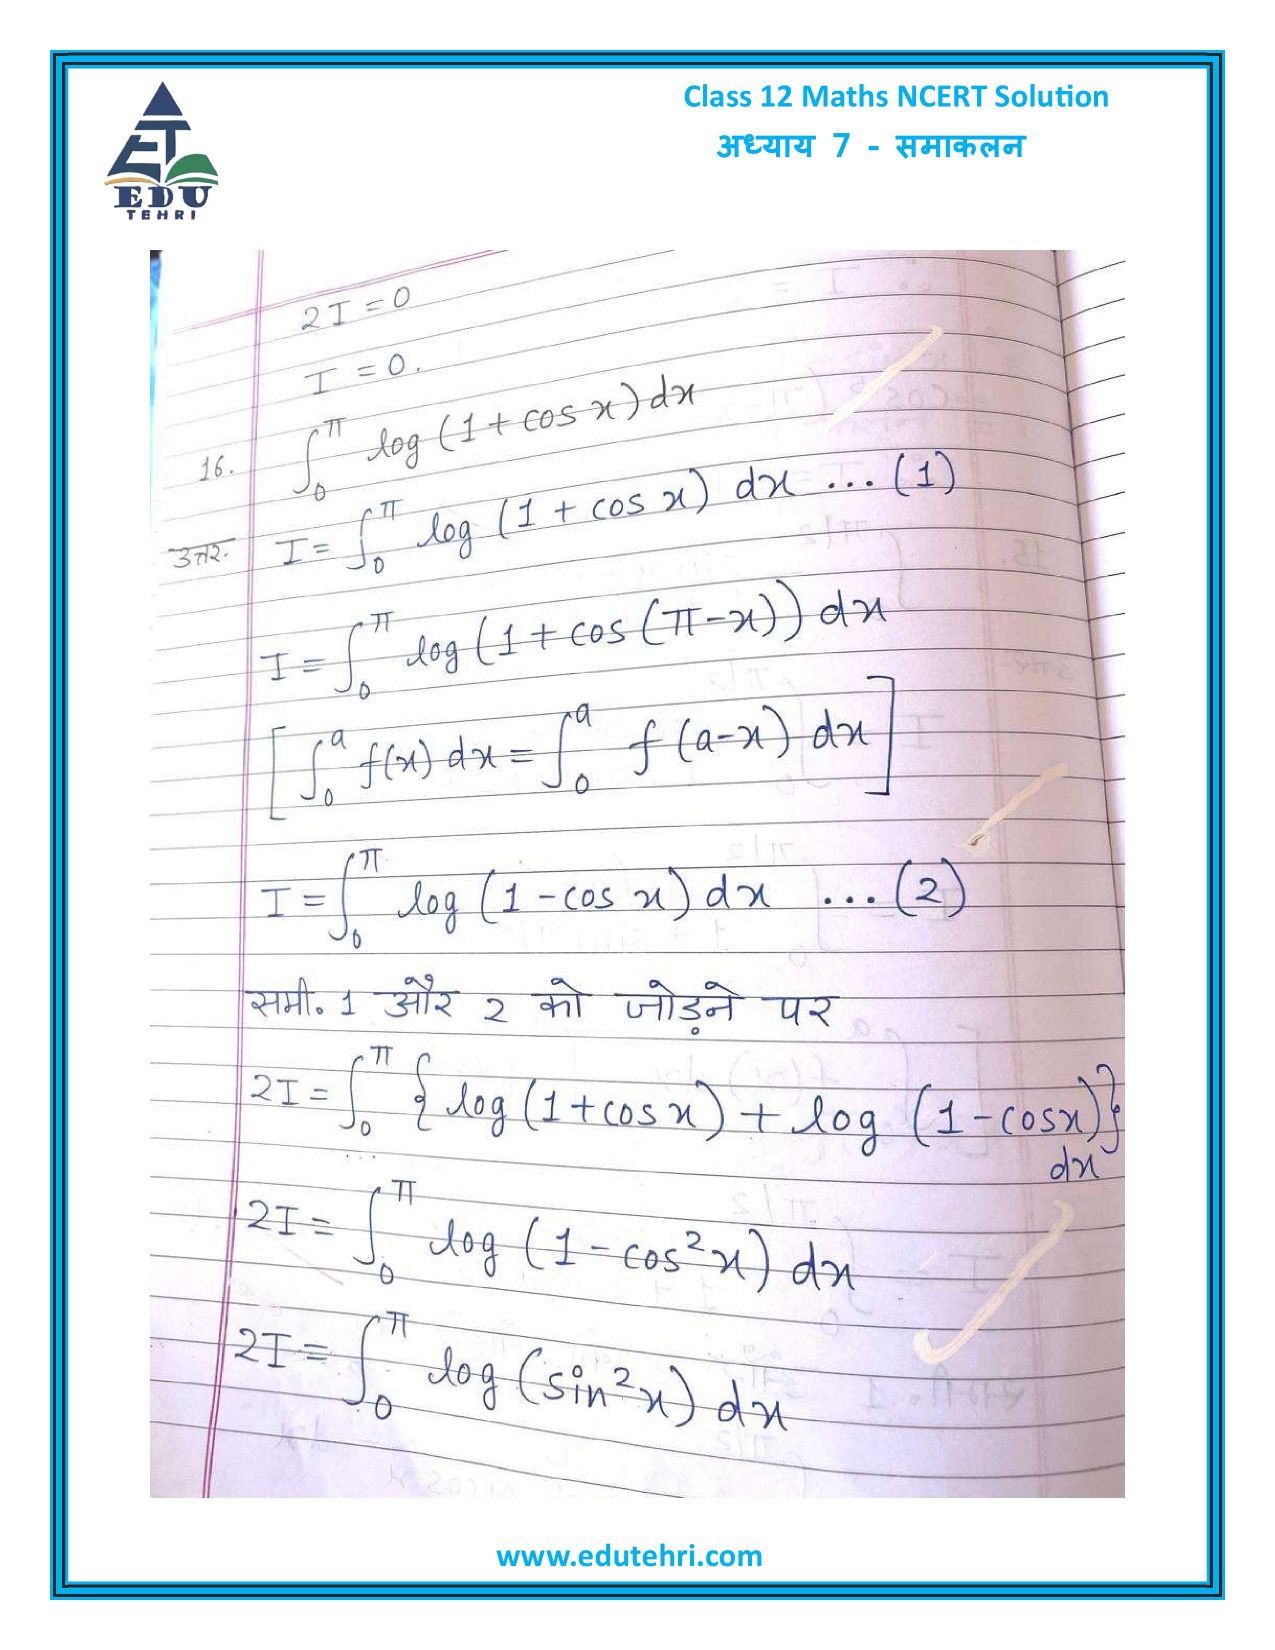 Class 12 Maths NCERT Solution
अध्याय 7 - समाकलन
EDU
TEHRI
2I = 0
I = 0.
16. ∫₀^π log (1 + cos x) dx
उत्तर. I = ∫₀^π log (1 + cos x) dx ... (1)
I = ∫₀^π log (1 + cos (π - x)) dx
[∫₀^a f(x) dx = ∫₀^a f (a-x) dx]
I = ∫₀^π log (1 - cos x) dx ... (2)
समी. 1 और 2 को जोड़ने पर
2I = ∫₀^π { log (1 + cos x) + log (1 - cos x)}
dx
2I = ∫₀^π log (1 - cos² x) dx
2I = ∫₀^π log (sin² x) dx
www.edutehri.com